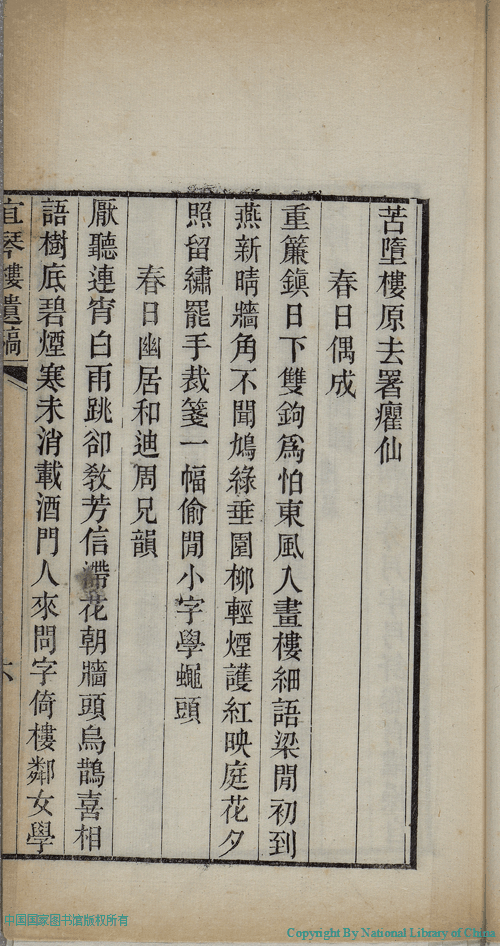 苦墮樓原去署癯仙
春日偶成
重簾鎭日下雙鉤爲怕東風入畫樓細語梁閒初到
燕新晴牆角不聞鳩綠垂圍柳輕煙護紅映庭花夕
照留繡罷手裁箋一幅偷閒小字學蠅頭
春日幽居和迪周兄韻
厭聽連宵白雨跳卻敎芳信滯花朝牆頭烏鵲喜相
語樹底碧煙寒未消載酒門人來問字倚樓鄰女學
宜琴樓遺稿
六
中国国家图书馆版权所有
Copyright By National Library of China